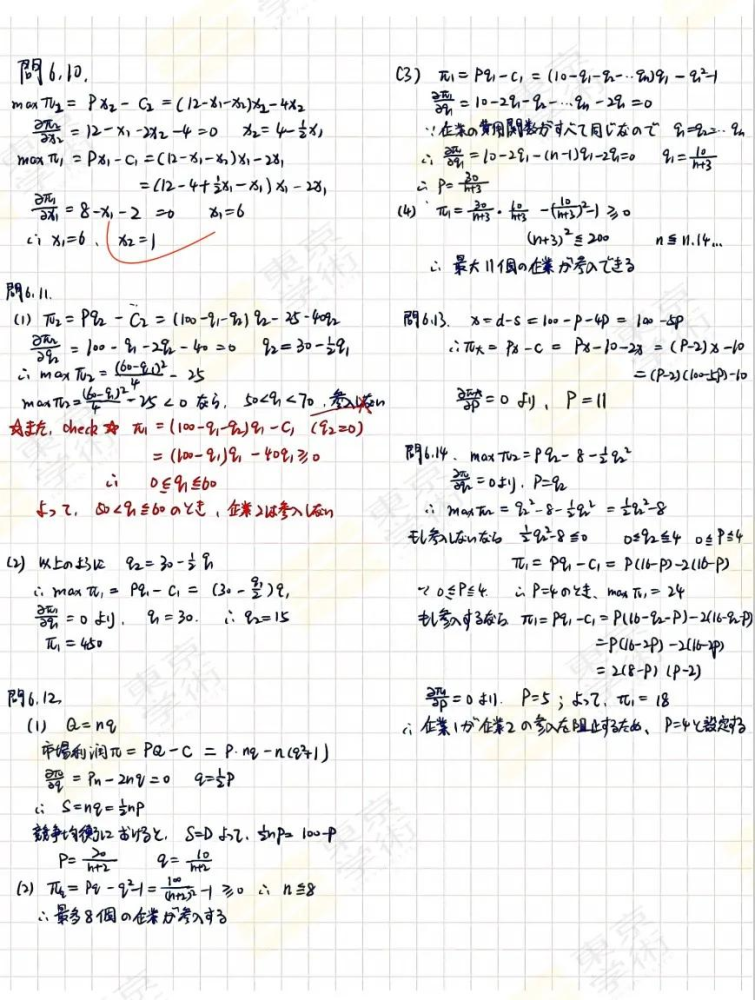 問6.10.
max π₂ = Px₂ - C₂ = (12-x₁-x₂)x₂-4x₂
∂π₂/∂x₂ = 12-x₁-2x₂-4=0 x₂=4-½x₁
max π₁ = Px₁-C₁ = (12-x₁-x₂)x₁-2x₁
= (12-4+½x₁-x₁)x₁-2x₁
∂π₁/∂x₁ = 8-x₁-2 =0 x₁=6
∴ x₁=6、x₂=1
問6.11.
(1) π₂ = Pq₂ - C₂ = (100-q₁-q₂)q₂-25-40q₂
∂π₂/∂q₂ = 100-q₁-2q₂-40=0 q₂=30-½q₁
∴ max π₂ = (60-q₁)²/4 - 25
max π₂=(60-q₁)²/4-25<0 なら、50<q₁<70、参入しない
☆また、check☆ π₁=(100-q₁-q₂)q₁-C₁ (q₂=0)
= (100-q₁)q₁-40q₁≥0
∴ 0≦q₁≦60
よって、50<q₁≦60のとき、企業2は参入しない
(2) 以上のように q₂=30-½q₁
∴ max π₁ = Pq₁-C₁ = (30-q₁/2)q₁
∂π₁/∂q₁=0より、q₁=30. ∴ q₂=15
π₁=450
問6.12.
(1) Q=nq
市場利潤π=PQ-C = P·nq-n(q²+1)
∂π/∂q = Pn-2nq=0 q=½P
∴ S=nq=½nP
競争均衡における と、S=Dよって、½nP=100-P
P=20/n+2 q=10/n+2
(2) πq=Pq-q²-1=100/(n+2)²-1≥0 ∴ n≦8
∴最多8個の企業が参入する
(3) π₁=Pq₁-C₁=(10-q₁-q₂-…qn)q₁-q₁²-1
∂π₁/∂q₁=10-2q₁-q₂-…qn-2q₁=0
∵企業の費用関数がすべて同じなので q₁=q₂=…qn
∴ ∂π/∂q₁=10-2q₁-(n-1)q₁-2q₁=0 q₁=10/n+3
∴ P=30/n+3
(4) π₁=30/n+3·10/n+3-(10/n+3)²-1≥0
(n+3)²≦200 n≦11.14…
∴ 最大11個の企業が参入できる
問6.13. x=d-s=100-P-4P=100-5P
∴πx=Px-C=Px-10-2x=(P-2)x-10
=(P-2)(100-5P)-10
∂πx/∂P=0より、P=11
問6.14. max π₂=Pq₂-8-½q₂²
∂π₂/∂q₂=0より、P=q₂
∴ max π₂=q₂²-8-½q₂²=½q₂²-8
もし参入しないなら ½q₂²-8≦0 0≦q₂≦4 0≦P≦4
π₁=Pq₁-C₁=P(16-P)-2(16-P)
∵ 0≦P≦4. ∴P=4のとき、max π₁=24
もし参入するなら π₁=Pq₁-C₁=P(16-q₂-P)-2(16-q₂-P)
=P(16-2P)-2(16-2P)
=2(8-P)(P-2)
∂π₁/∂P=0より. P=5；よって、π₁=18
∴ 企業1が企業2の参入を阻止するため、P=4と設定する